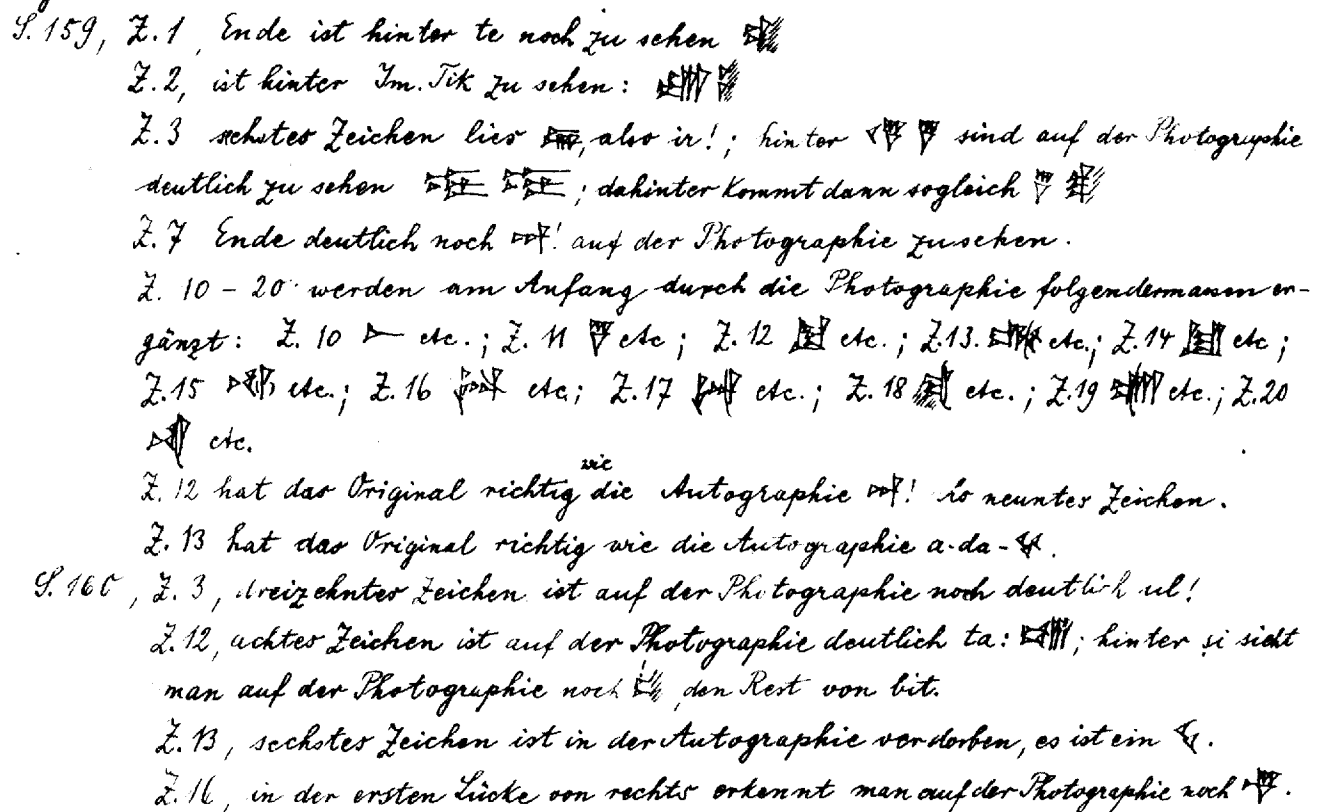 S. 159, Z. 1, Ende ist hinter te noch zu sehen
Z. 2, ist hinter Im. Tik zu sehen:
Z. 3 sechstes Zeichen lies , also ir!; hinter 𒐊 sind auf der Photographie
deutlich zu sehen ; dahinter kommt dann sogleich
Z. 7 Ende deutlich noch ! auf der Photographie zu sehen.
Z. 10 - 20 werden am Anfang durch die Photographie folgendermassen er-
gänzt: Z. 10 etc.; Z. 11 etc; Z. 12 etc.; Z. 13. etc.; Z. 14 etc;
Z. 15 etc.; Z. 16 etc; Z. 17 etc.; Z. 18 etc.; Z. 19 etc.; Z. 20
etc.
Z. 12 hat das Original richtig wie die Autographie ! als neuntes Zeichen.
Z. 13 hat das Original richtig wie die Autographie a-da-
S. 160, Z. 3, dreizehntes Zeichen ist auf der Photographie noch deutlich ul!
Z. 12, achtes Zeichen ist auf der Photographie deutlich ta: ; hinter si sieht
man auf der Photographie noch , den Rest von bit.
Z. 13, sechstes Zeichen ist in der Autographie verdorben, es ist ein .
Z. 16, in der ersten Lücke von rechts erkennt man auf der Photographie noch .